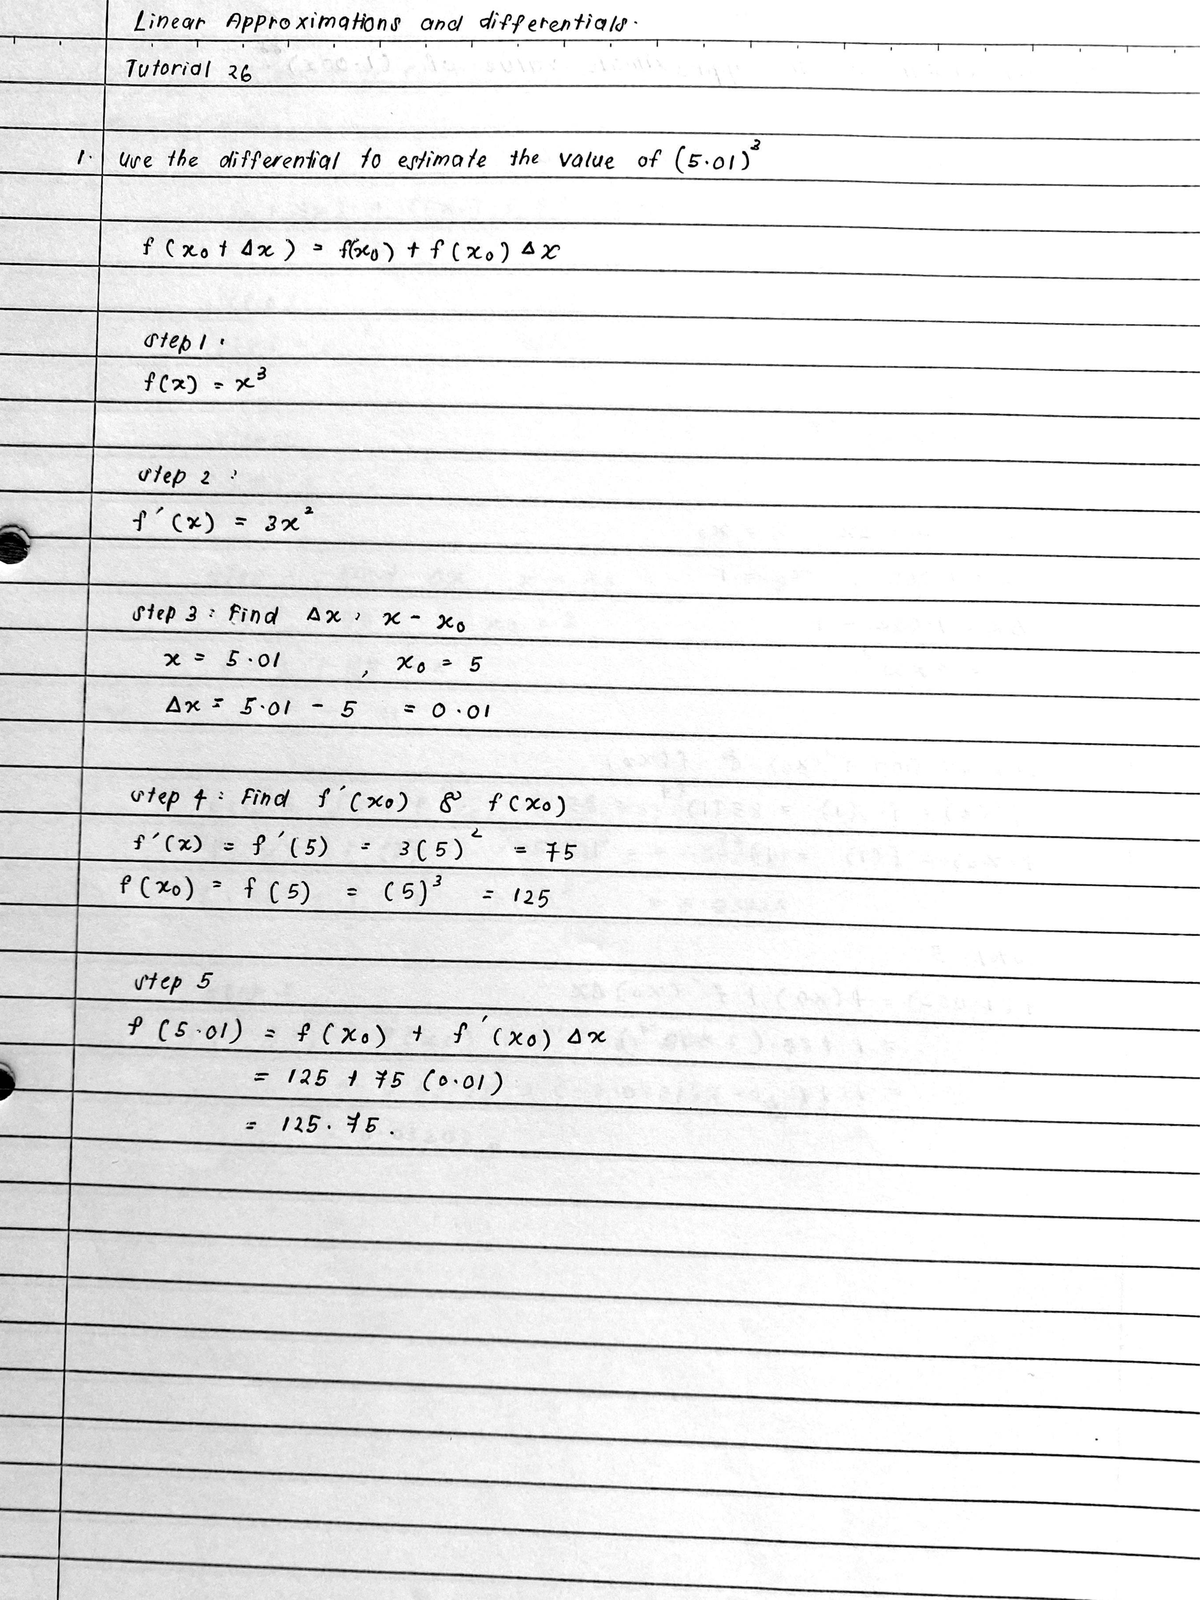 Linear Approximations and differentials.
Tutorial 26
1. Use the differential to estimate the value of (5.01)³
f (x₀ + Δx) = f(x₀) + f (x₀) Δx
step 1 :
f(x) = x³
step 2 :
f′(x) = 3x²
step 3 : Find Δx = x - x₀
x = 5.01 , x₀ = 5
Δx = 5.01 - 5 = 0.01
step 4 : Find f′(x₀) & f(x₀)
f′(x) = f′(5) = 3(5)² = 75
f(x₀) = f(5) = (5)³ = 125
step 5
f (5.01) = f(x₀) + f′(x₀) Δx
= 125 + 75 (0.01)
= 125.75.